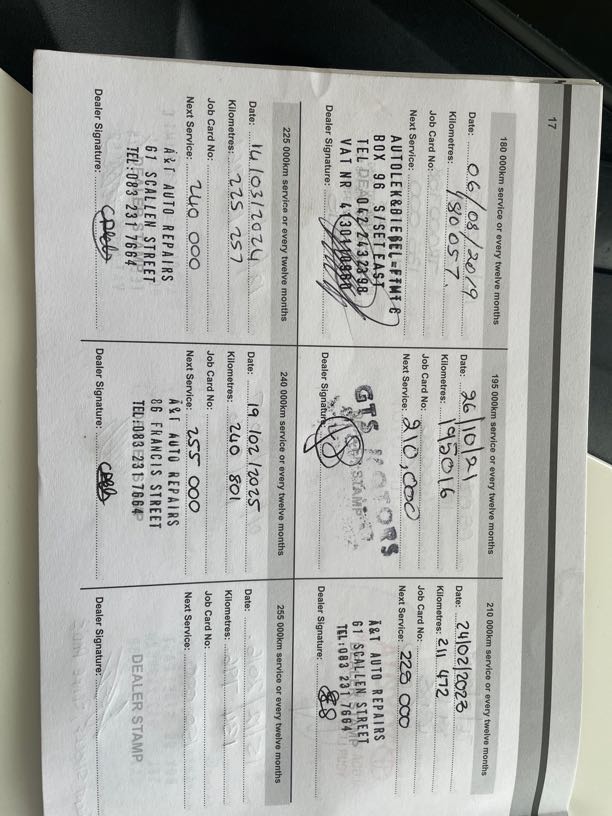 17
180 000km service or every twelve months
Date: 06/08/2019
Kilometres: 180 057.
Job Card No:
Next Service:
AUTOLEK&DIESEL=FTMT &
BOX 96 S/SETEAST
TEL 042-243 2398
VAT NR
Dealer Signature:
195 000km service or every twelve months
Date: 26/10/21
Kilometres: 195016
Job Card No:
Next Service: 210,000
GTS MOTORS
Dealer Signature:
210 000km service or every twelve months
Date: 24/02/2023
Kilometres: 211 472
Job Card No:
Next Service: 228 000
A&T AUTO REPAIRS
61 SCALLEN STREET
TEL:083 231 7664
Dealer Signature:
225 000km service or every twelve months
Date: 14/03/2024
Kilometres: 225 257
Job Card No:
Next Service: 240 000
A&T AUTO REPAIRS
61 SCALLEN STREET
TEL:083 231 7664
Dealer Signature:
240 000km service or every twelve months
Date: 19/02/2025
Kilometres: 240 801
Job Card No:
Next Service: 255 000
A&T AUTO REPAIRS
86 FRANCIS STREET
TEL:083 231 7664
Dealer Signature:
255 000km service or every twelve months
Date:
Kilometres:
Job Card No:
Next Service:
DEALER STAMP
Dealer Signature: